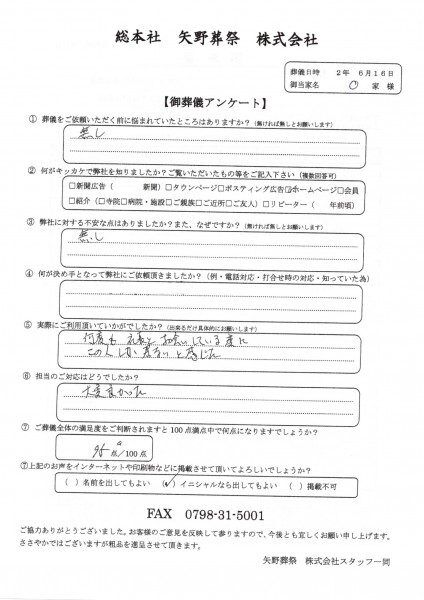 総本社 矢野葬祭 株式会社
葬儀日時: 2年 6月16日
御当家名 O 家 様
【御葬儀アンケート】
① 葬儀をご依頼いただく前に悩まれていたところはありますか?(無ければ無しとお願いします)
無し
② 何がキッカケで弊社を知りましたか?ご覧いただいたもの等をご記入下さい(複数回答可)
□新聞広告( 新聞)□タウンページ□ポスティング広告☑ホームページ□会員
□紹介(□寺院□病院・施設□ご親族□ご近所□ご友人)□リピーター( 年前頃)
③ 弊社に対する不安な点はありましたか?また、なぜですか?(無ければ無しとお願いします)
無し
④ 何が決め手となって弊社にご依頼頂きましたか?(例・電話対応・打合せ時の対応・知っていた為)
⑤ 実際にご利用頂いていかがでしたか?(出来るだけ具体的にお願いします)
何度も
この人しか 居ない と感じた
⑥ 担当のご対応はどうでしたか?
大変良かった
⑦ ご葬儀全体の満足度をご判断されますと100点満点中で何点になりますでしょうか?
95点/100点
⑦上記のお声をインターネットや印刷物などに掲載させて頂いてよろしいでしょうか?
( )名前を出してもよい (✓)イニシャルなら出してもよい ( )掲載不可
FAX 0798-31-5001
ご協力ありがとうございました。お客様のご意見を反映して参りますので、今後とも宜しくお願い申し上げます。
ささやかではございますが粗品を進呈させて頂きます。
矢野葬祭 株式会社スタッフ一同